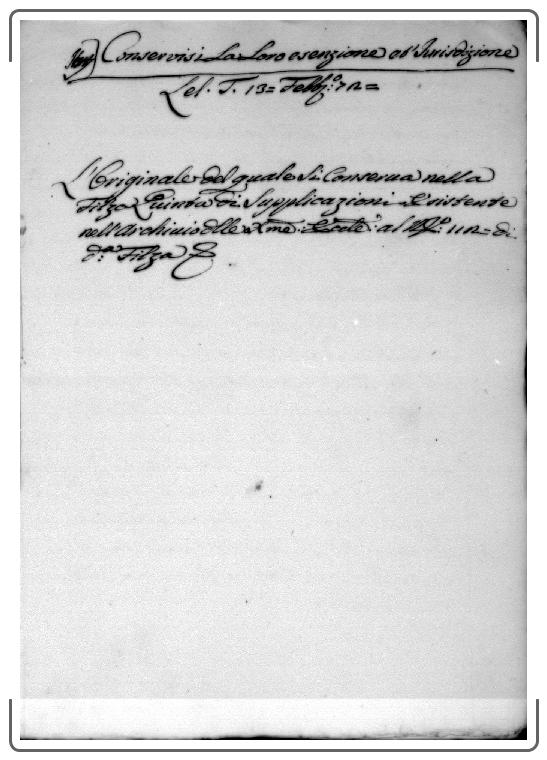 Conservisi La Loro esenzione e l'Jurisdizione
Lel. T. 13= Febb:º 72=
L'Originale del quale Si Conserva nella
Filza Quinta di Supplicazioni Esistente
nell'Archivio dlle al 112= di
d:ª Filza